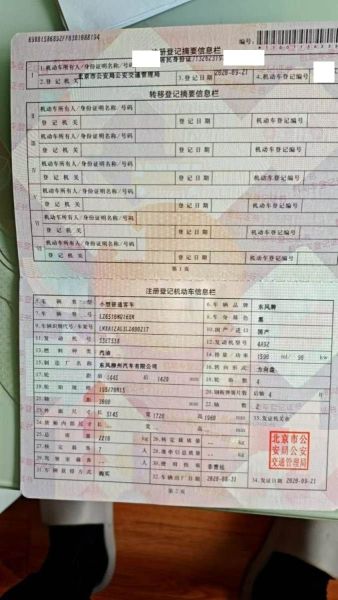 注册登记摘要信息栏
编号:
1.机动车所有人/身份证明名称/号码
居民身份证
2.登记机关 北京市公安局公安交通管理局 3.登记日期 2020-09-21 4.机动车登记编号
转移登记摘要信息栏
Ⅱ 机动车所有人/身份证明名称/号码
登记机关 登记日期 机动车登记编号
Ⅲ 机动车所有人/身份证明名称/号码
登记机关 登记日期 机动车登记编号
Ⅳ 机动车所有人/身份证明名称/号码
登记机关 登记日期 机动车登记编号
Ⅴ 机动车所有人/身份证明名称/号码
登记机关 登记日期 机动车登记编号
Ⅵ 机动车所有人/身份证明名称/号码
登记机关 登记日期 机动车登记编号
Ⅶ 机动车所有人/身份证明名称/号码
登记机关 登记日期 机动车登记编号
第1页
注册登记机动车信息栏
5.车辆类型 小型普通客车 6.车辆品牌 东风牌
7.车辆型号 8.车身颜色 黑
9.车辆识别代号/车架号 10.国产/进口 国产
11.发动机号 12.发动机型号 4A92
13.燃料种类 汽油 14.排量/功率 1590 ml/ 90 kw
15.制造厂名称 东风柳州汽车有限公司 16.转向形式 方向盘
17.轮距 前 1445 后 1420 mm 18.轮胎数 4
19.轮胎规格 20.钢板弹簧片数 后轴 4 片
21.轴距 mm 22.轴数 2
23.外廓尺寸 长 5145 宽 1720 高 1960 mm 33.发证机关章
24.货厢内部尺寸 长 宽 高 mm
25.总质量 2210 kg 26.核定载质量 kg
27.核定载客 7 人 28.准牵引总质量 kg
29.驾驶室载客 人 30.使用性质 非营运
31.车辆获得方式 购买 32.车辆出厂日期 2020-08-31 34.发证日期 2020-09-21
北京市公
安局公安
交通管理局
第2页